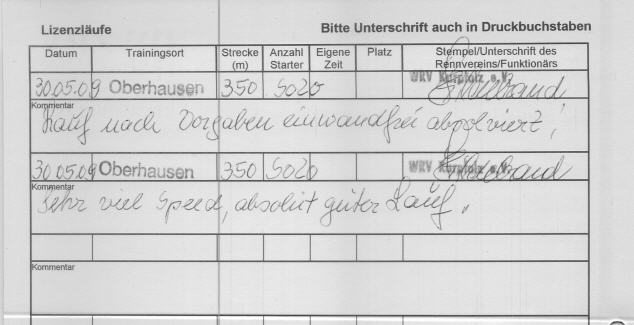 Lizenzläufe Bitte Unterschrift auch in Druckbuchstaben
Datum Trainingsort Strecke (m) Anzahl Starter Eigene Zeit Platz Stempel/Unterschrift des Rennvereins/Funktionärs
30.05.09 Oberhausen 350 Solo WRV Kurpfalz e.V.
Kommentar
Lauf nach Vorgaben einwandfrei absolviert!
30.05.09 Oberhausen 350 Solo WRV Kurpfalz e.V.
Kommentar
Sehr viel Speed, absolut guter Lauf.
Kommentar